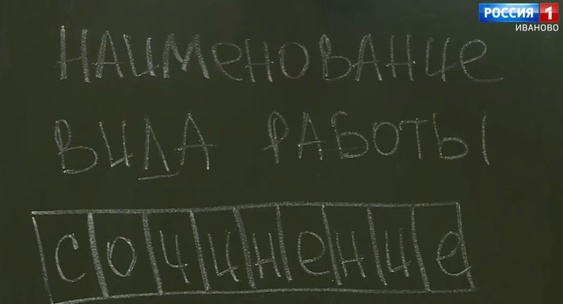 РОССИЯ 1
ИВАНОВО
НАИМЕНОВАНИЕ
ВИДА РАБОТЫ
сочинение